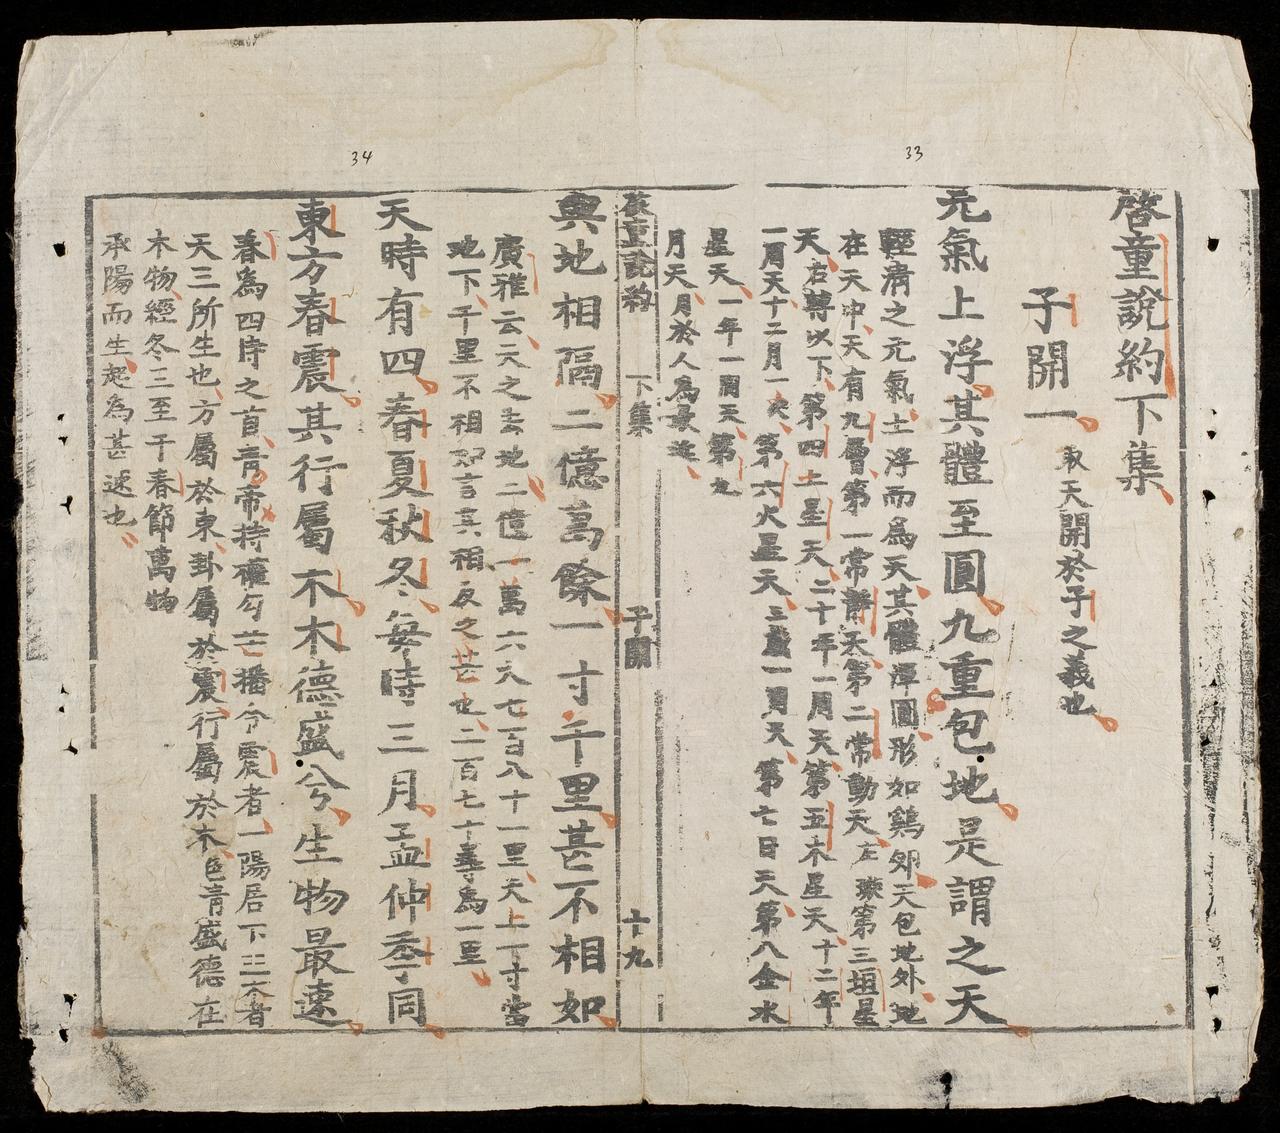 33
啓童說約下集
子開一
取天開於子之義也
元氣上浮其體至圓九重包地是謂之天
輕清之元氣上浮而爲天其體渾圓形如鷄卵天包地外地
在天中天有九層第一常静天第二常動天左旋第三垣星
天右轉以下第四土星天二十年一周天第五木星天十二年
一周天十二月一次第六火星天二歲一周天第七日天第八金水
星天一年一周天第九
月天月於人爲最近
下集
子開
十九
34
輿地相隔二億萬餘一寸千里甚不相如
廣雅云天之去地二億一萬六大七百八十一里天上一寸當
地下千里不相如言其相反之甚也二百七十尋爲一里
天時有四春夏秋冬每時三月孟仲季同
東方春震其行屬木木德盛兮生物最速
春為四時之首青帝持權勾芒播令震者一陽居下三木者
天三所生也方屬於東卦屬於震行屬於木色青盛德在
木物經冬三至于春節萬物
承陽而生起為甚速也